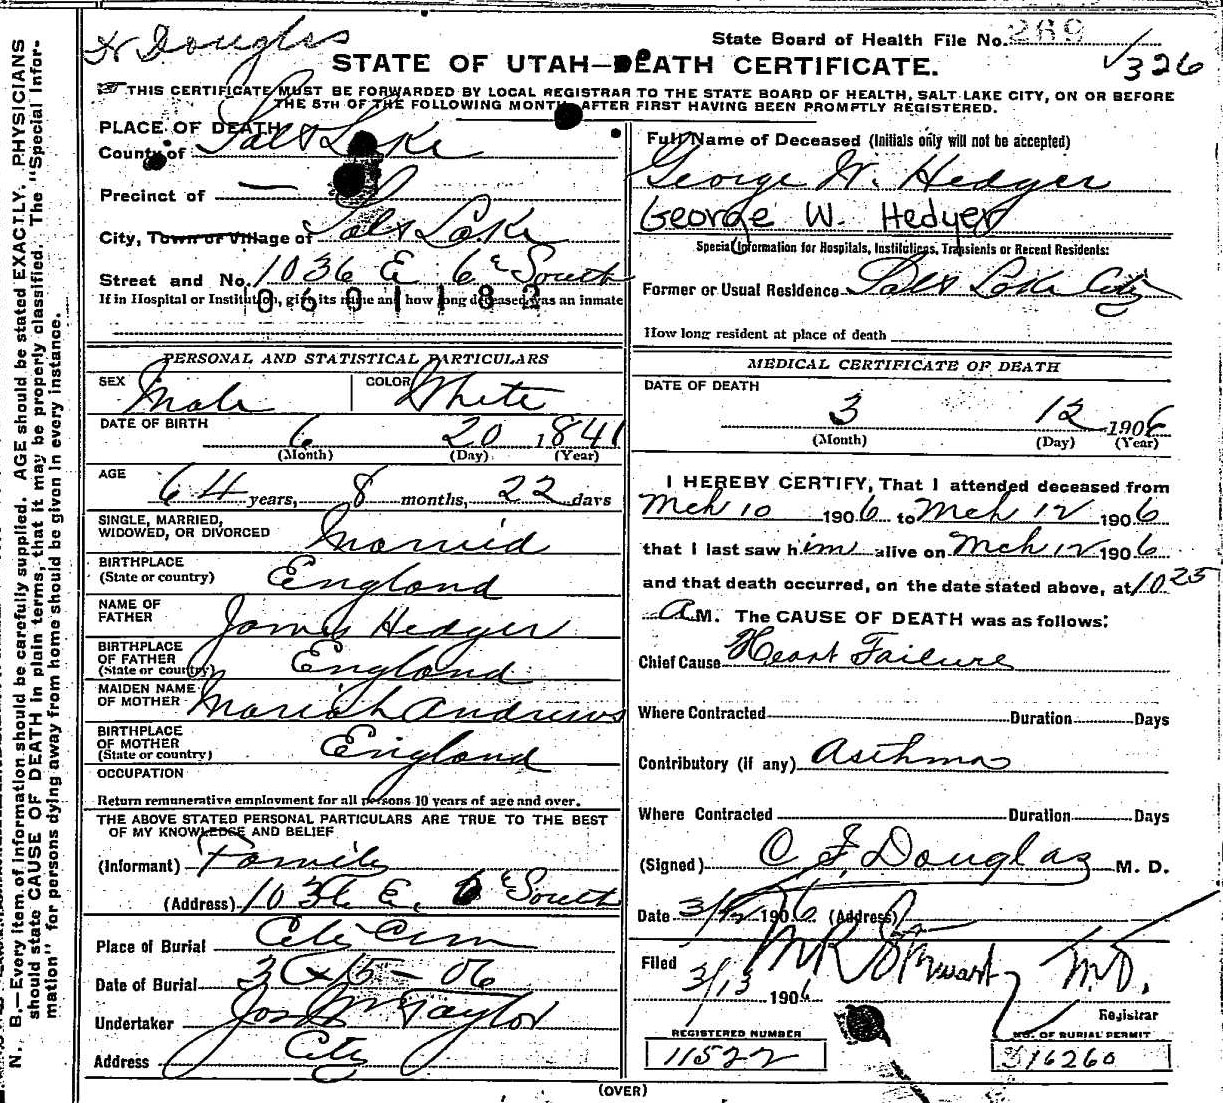 N. B.—Every item of information should be carefully supplied. AGE should be stated EXACTLY. PHYSICIANS
should state CAUSE OF DEATH in plain terms, that it may be properly classified. The "Special Infor-
mation" for persons dying away from home should be given in every instance.
Douglas
State Board of Health File No. 269
326
STATE OF UTAH—DEATH CERTIFICATE.
THIS CERTIFICATE MUST BE FORWARDED BY LOCAL REGISTRAR TO THE STATE BOARD OF HEALTH, SALT LAKE CITY, ON OR BEFORE
THE 5TH OF THE FOLLOWING MONTH, AFTER FIRST HAVING BEEN PROMPTLY REGISTERED.
PLACE OF DEATH
County of Salt Lake
Precinct of —
City, Town or Village of Salt Lake
Street and No. 1036 E 6th South
If in Hospital or Institution, give its name and how long deceased was an inmate
0601182
PERSONAL AND STATISTICAL PARTICULARS
SEX Male COLOR White
DATE OF BIRTH 6 20 1841
(Month) (Day) (Year)
AGE 64 years, 8 months, 22 days
SINGLE, MARRIED,
WIDOWED, OR DIVORCED Married
BIRTHPLACE
(State or country) England
NAME OF
FATHER James Hedger
BIRTHPLACE
OF FATHER
(State or country) England
MAIDEN NAME
OF MOTHER Mariah Andrews
BIRTHPLACE
OF MOTHER
(State or country) England
OCCUPATION
Return remunerative employment for all persons 10 years of age and over.
THE ABOVE STATED PERSONAL PARTICULARS ARE TRUE TO THE BEST
OF MY KNOWLEDGE AND BELIEF
(Informant) Family
(Address) 1036 E. 6 South
Place of Burial City Cem
Date of Burial 3 15 — 06
Undertaker Jos Wm Taylor
Address City
Full Name of Deceased (Initials only will not be accepted)
George W. Hedger
George W. Hedyer
Special Information for Hospitals, Institutions, Transients or Recent Residents:
Former or Usual Residence Salt Lake City
How long resident at place of death
MEDICAL CERTIFICATE OF DEATH
DATE OF DEATH
3 12 1906
(Month) (Day) (Year)
I HEREBY CERTIFY, That I attended deceased from
Mch 10 1906 to Mch 12 1906
that I last saw him alive on Mch 12 1906
and that death occurred, on the date stated above, at 10 25
A M. The CAUSE OF DEATH was as follows:
Chief Cause Heart Failure
Where Contracted Duration Days
Contributory (if any) Asthma
Where Contracted Duration Days
(Signed) C F Douglas M. D.
Date 3/12 1906 (Address)
Filed 3/13 1906 M R Stewart M.D.
Registrar
REGISTERED NUMBER NO. OF BURIAL PERMIT
11522 16260
(OVER)